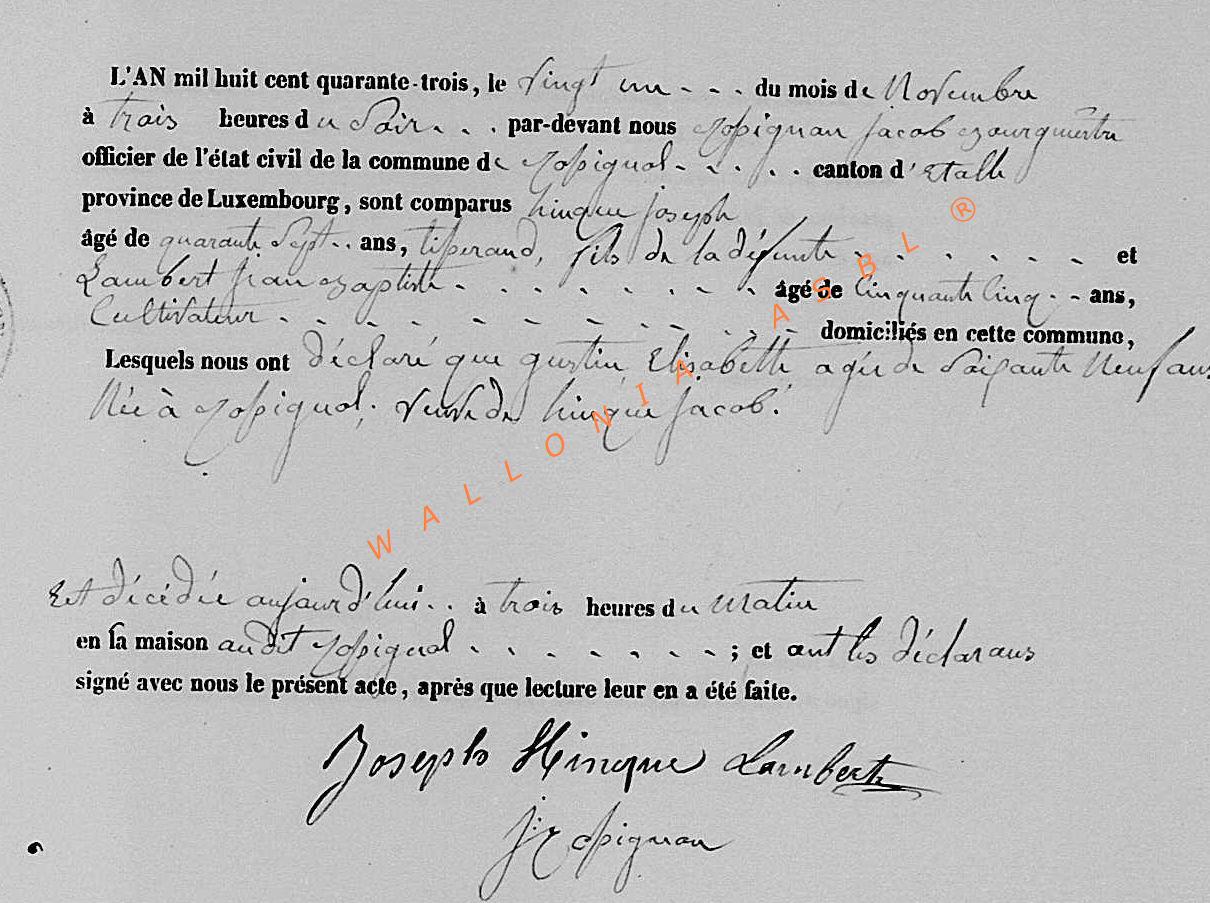 L'AN mil huit cent quarante-trois, le vingt un - - - du mois de Novembre
à trois heures du Soir - - - par-devant nous Rossignon Jacob Bourguestre
officier de l'état civil de la commune de Rossignol - - - - canton d'Etalle
province de Luxembourg, sont comparus hinque Joseph
âgé de quarante Sept - - ans, tisserand, fils de la défunte - - - - - - et
Lambert jean Baptiste - - - - - - - - âgé de Cinquante Cinq - - ans,
Cultivateur - - - - - - - - - - - - domiciliés en cette commune,
Lesquels nous ont déclaré que gustin Elisabeth agée de Soixante Neuf ans
Née à Rossignol, veuve de hinque Jacob.
Est décédée aujourd'hui - - à trois heures du Matin
en sa maison audit Rossignol - - - - - - - ; et ont les déclarans
signé avec nous le présent acte, après que lecture leur en a été faite.
Joseph Hinque Lambert
J: Rossignon
WALLONIA ASBL ®